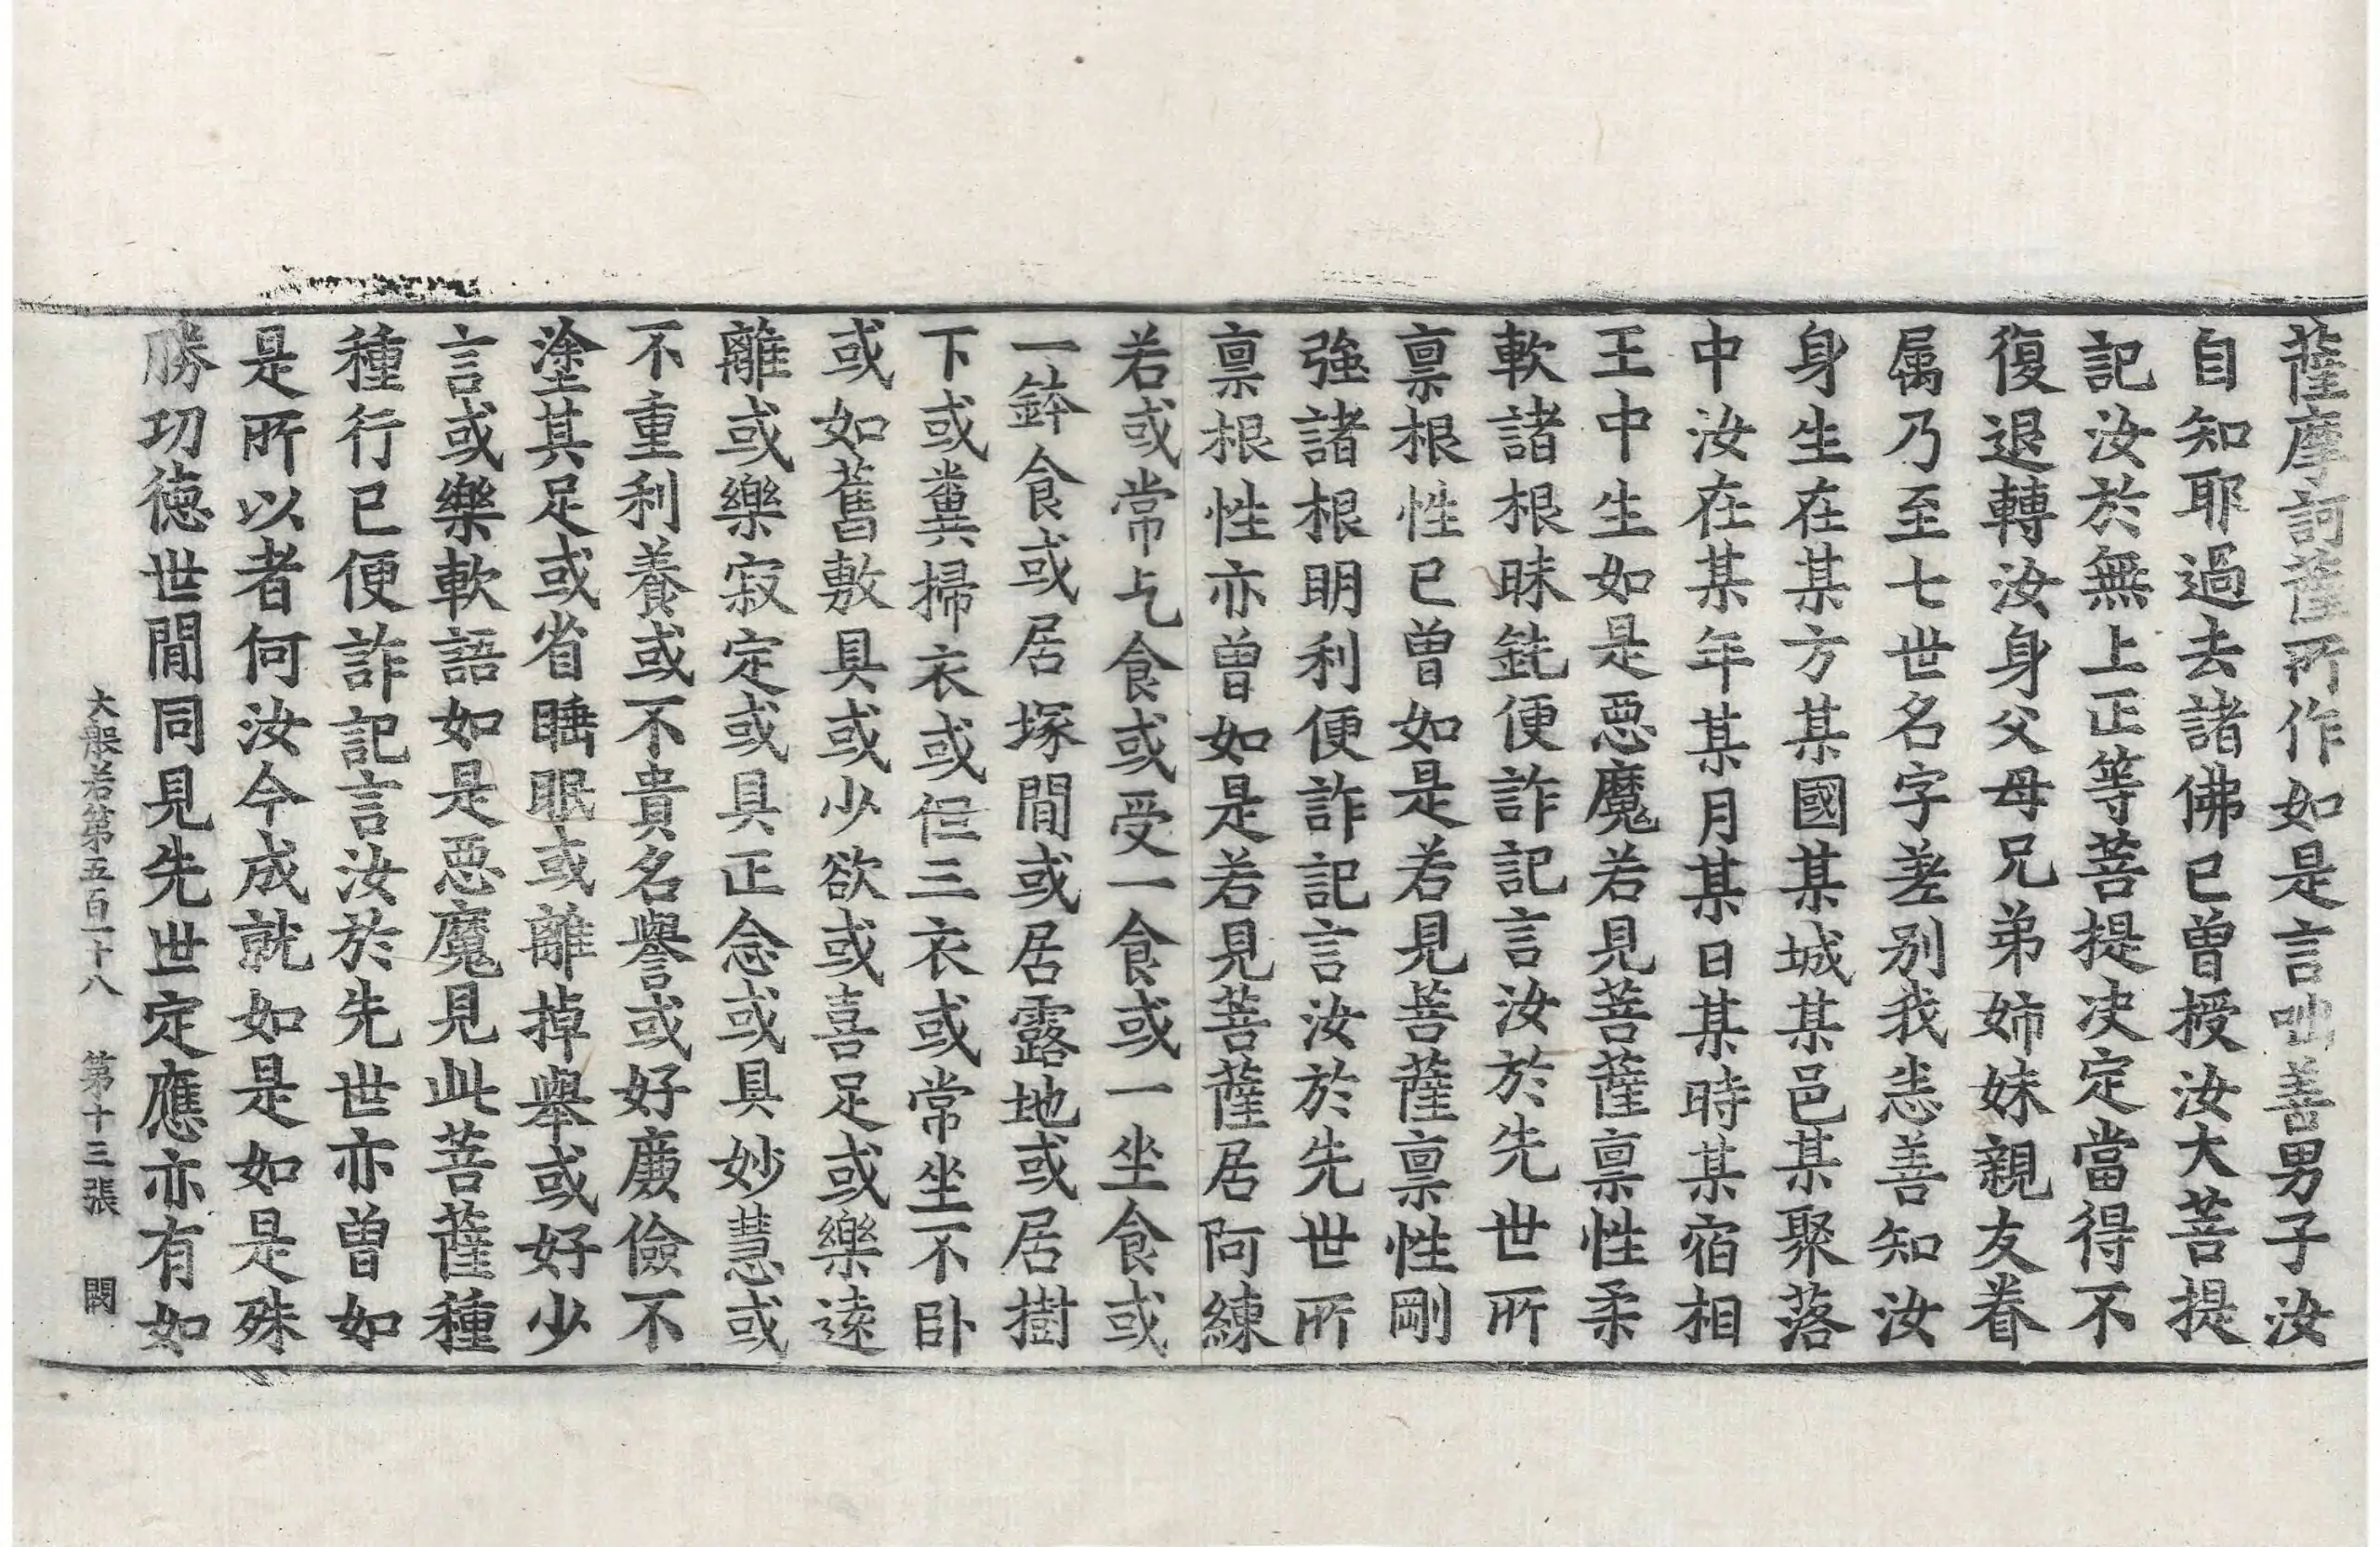 薩摩訶薩所作如是言咄善男子汝
自知耶過去諸佛已曾授汝大菩提
記汝於無上正等菩提決定當得不
復退轉汝身父母兄弟姉妹親友眷
属乃至七世名字差別我悉善知汝
身生在某方某國某城某邑某聚落
中汝在某年某月某日某時某宿相
王中生如是惡魔若見菩薩禀性柔
軟諸根昧鈍便詐記言汝於先世所
禀根性已曽如是若見菩薩禀性剛
強諸根明利便詐記言汝於先世所
禀根性亦曽如是若見菩薩居阿練
若或常乞食或受一食或一坐食或
一鉢食或居塚間或居露地或居樹
下或糞掃衣或但三衣或常坐不卧
或如舊敷具或少欲或喜足或樂遠
離或樂寂定或具正念或具妙慧或
不重利養或不貴名譽或好廉儉不
塗其足或省睡眠或離掉舉或好少
言或樂軟語如是惡魔見此菩薩種
種行已便詐記言汝於先世亦曽如
是所以者何汝今成就如是如是殊
勝功徳世間同見先世定應亦有如
大般若第五百一十八 第十三張 閏